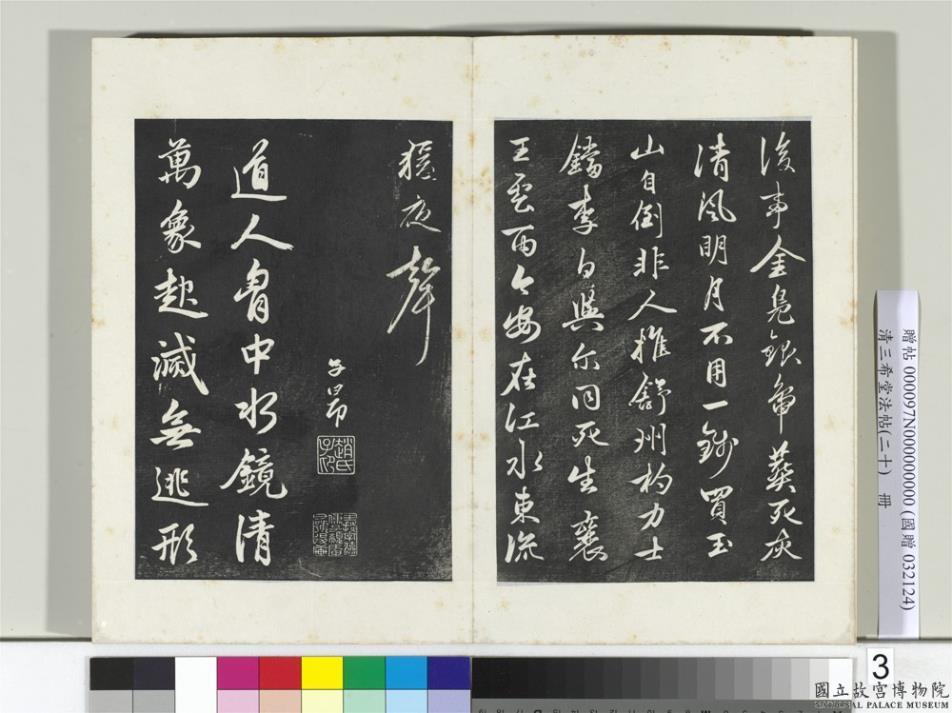 後事金鳧銀鴨葬死灰
清風明月不用一錢買玉
山自倒非人推舒州杓力士
鐺李白與尔同死生襄
王雲雨今安在江水東流
猿夜聲
子昂
道人胷中水鏡清
萬象起滅無逃形
贈帖 000097N000000000 (國贈 032124)
清三希堂法帖(二十) 冊
3
國立故宮博物院
NATIONAL PALACE MUSEUM